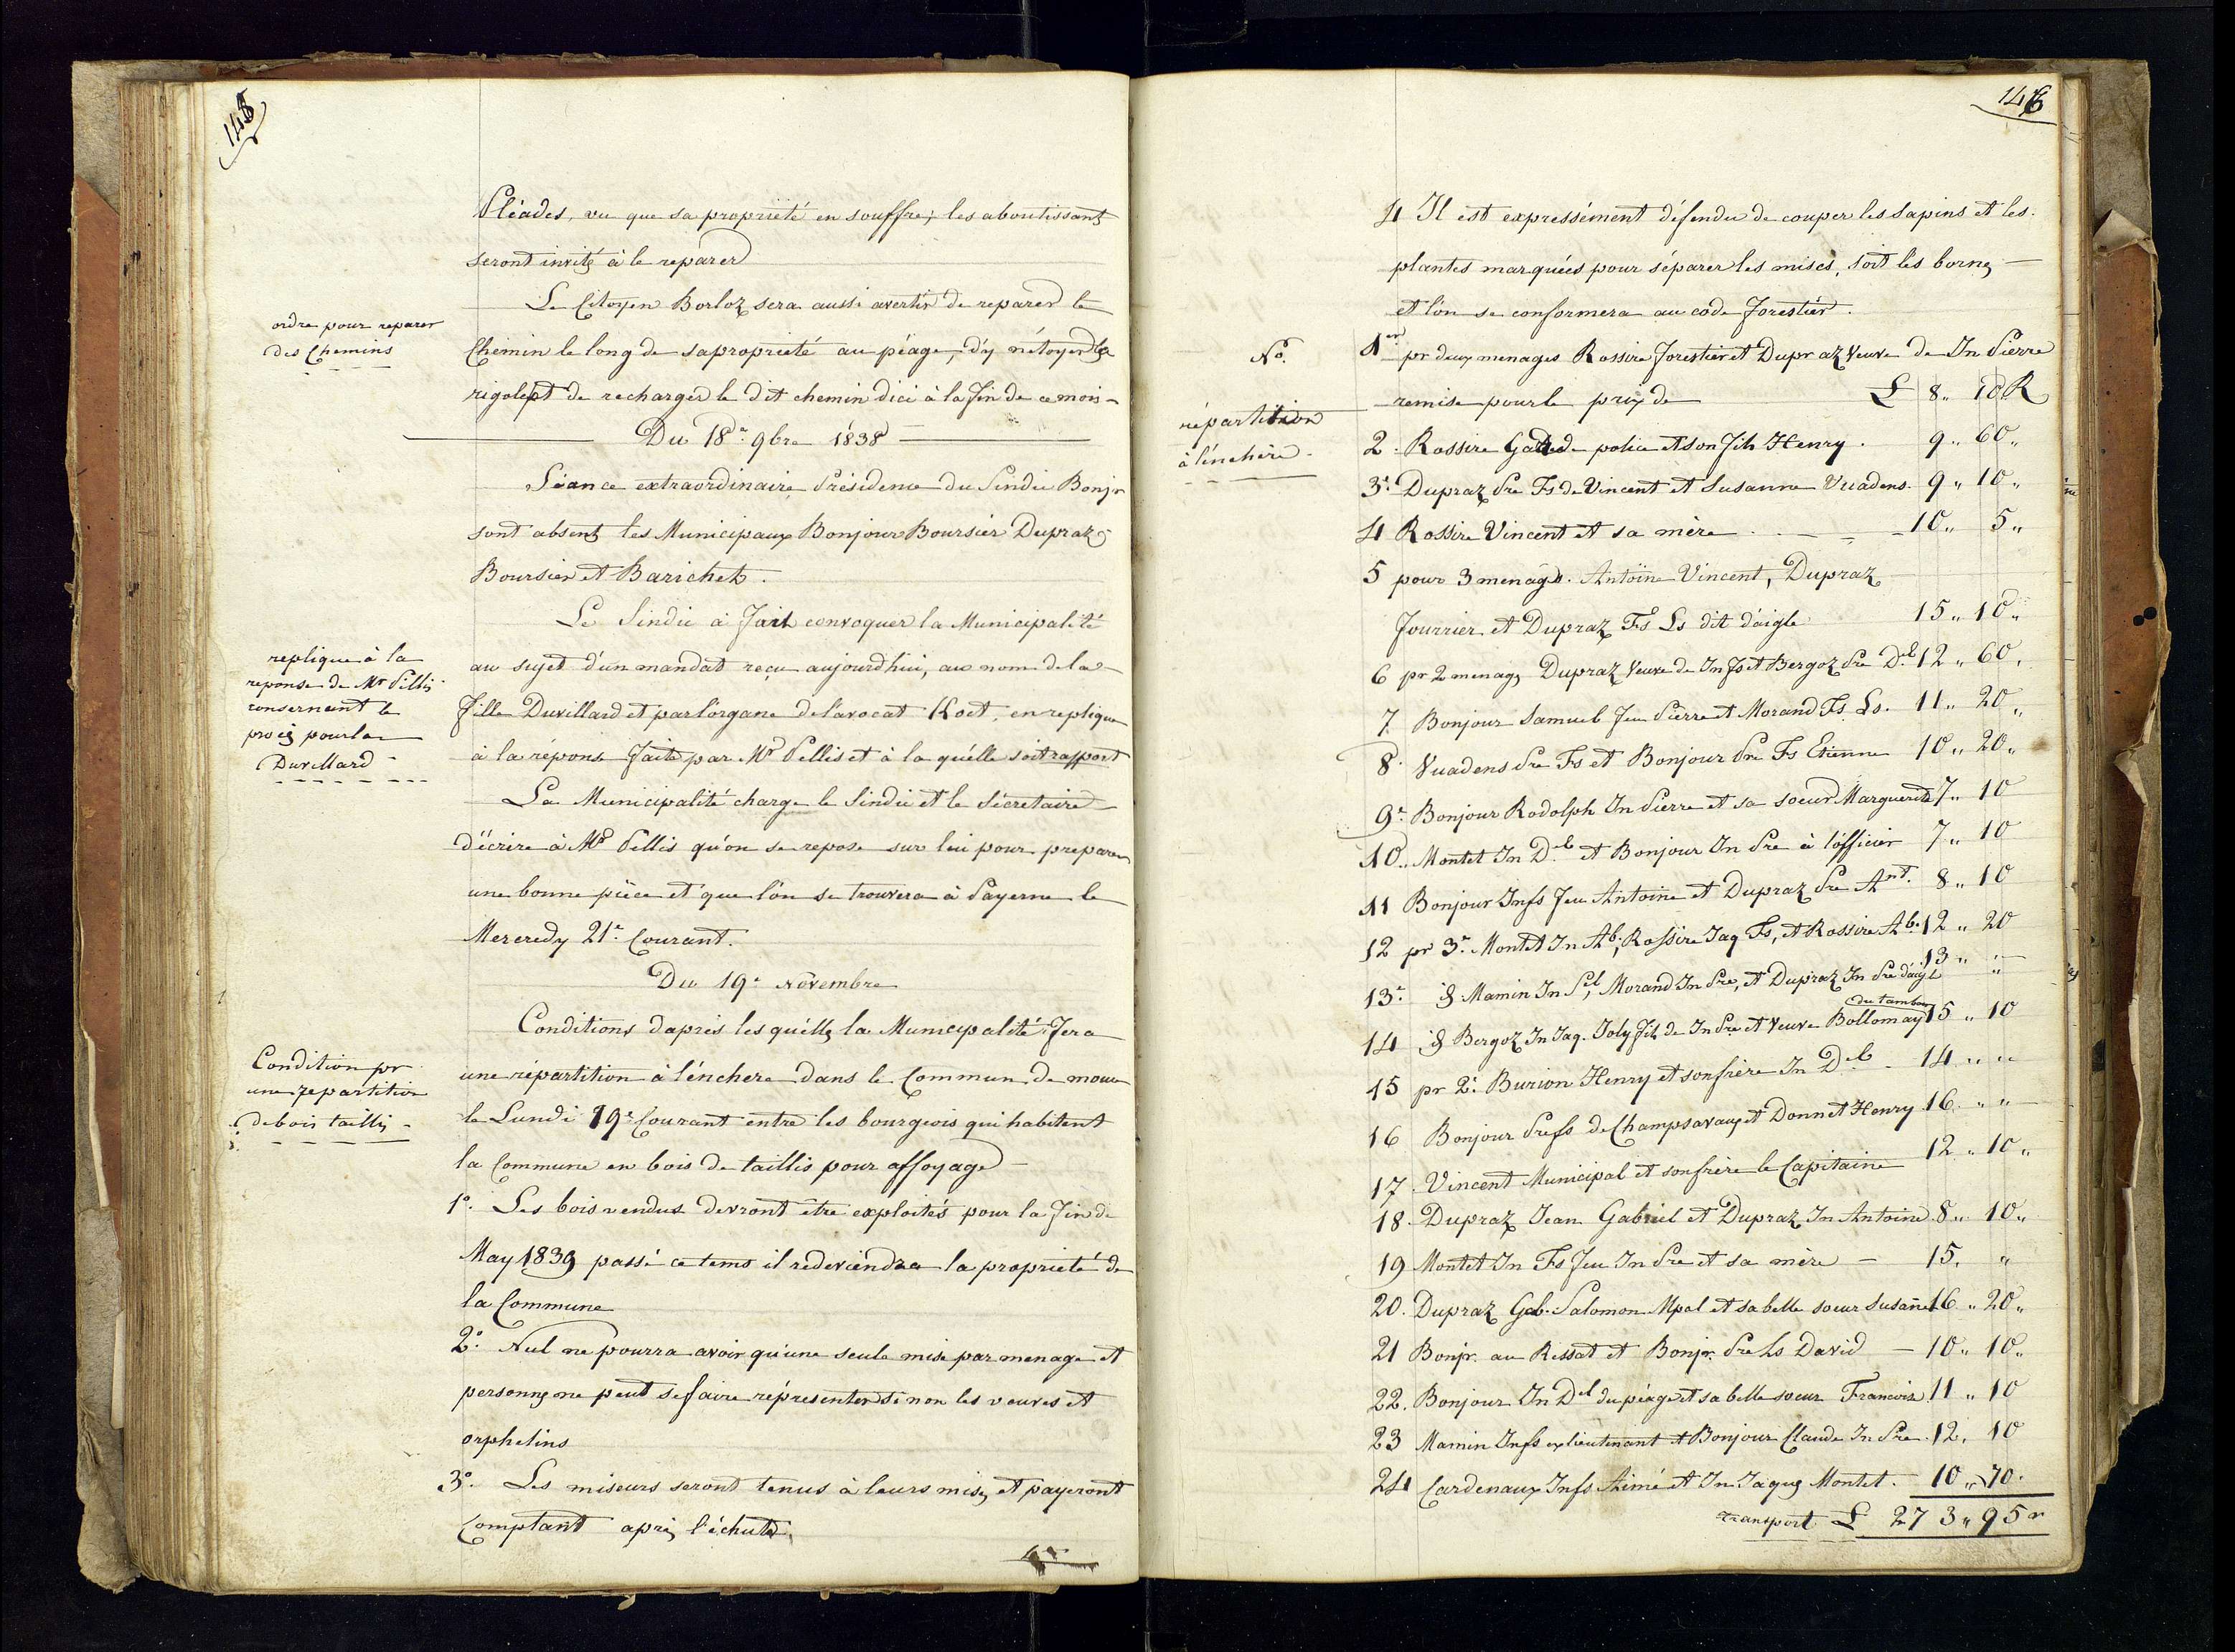 145
Pléades, vu que sa propriété en souffre, les aboutissants
seront invités à le reparer
Le Citoyen Borloz sera aussi avertir de reparer le
ordre pour reparer
des Chemins
Chemin le long de sa propriété au péage, d'y nétoyer la
rigole et de recharger le dit chemin dici à la fin de ce mois
Du 18e 9bre 1838
Séance extraordinaire Présidence du Sindic Bonjr
sont absents les Municipaux Bonjour Boursier Dupraz
Boursier et Barichet.
Le Sindic à fait convoquer la Municipalité
replique à la
reponse de Mr Pellis
consernant le
procès pour la
Duvillard
au sujet d'un mandat reçu aujourdhui, au nom de la
fille Duvillard et par l'organe de l'avocat Koet, en replique
à la répons faite par Mr Pellis et à la qu'elle soit rapport
La Municipalité charge le Sindic et le Sécretaire
d'écrire à Mr Pellis qu'on se repose sur lui pour preparer
une bonne pièce et que l'on se trouvera à Payerne le
Mercredy 21e Courant.
Du 19e Novembre
Conditions d'après les qu'elles la Municipalité fera
Condition pr
une repartition
de bois taillis
une répartition à l'énchere dans le Commun de mour
le Lundi 19e Courant entre les bourgeois qui habitent
la Commune en bois de taillis pour affoyage
1o. Les bois vendus devront être exploités pour la fin de
May 1839 passé ce tems il redeviendra la propriété de
la Commune
2o. Nul ne pourra avoir qu'une seule mise par menage et
personne ne peut se faire répresenter si non les veuves et
orphelins
3o. Les miseurs seront tenus à leurs mises et payeront
Comptant après l'échute.
146
4 Il est expressément défendu de couper les sapins et les
plantes marquées pour séparer les mises, soit les bornes
et l'on se conformera au code forestier.
No.
répartition
à l'énchère
1er pr deux menages Rossire forestier et Dupraz Veuve de Jn Pierre
remise pour le prix de L 8 " 10 R
2. Rossire Garde de police et son fils Henry. 9 " 60 "
3e. Dupraz Pre Fs de Vincent et Susanne Vuadens 9 " 10 "
4 Rossire Vincent et sa mère 10 " 5 "
5 pour 3 menages. Antoine Vincent, Dupraz
Fourrier et Dupraz Fs Ls dit d'aigle 15 " 10 "
6 pr 2 menages Dupraz Veuve de Jn Fs et Bergoz Pre Del 12 " 60 "
7 Bonjour Samuel feu Pierre et Morand Fs Ls. 11 " 20 "
8. Vuadens Pre Fs et Bonjour Pre Fs Etienne 10 " 20 "
9e. Bonjour Rodolph Jn Pierre et sa soeur Marguerite 7 " 10
10. Montet Jn Del et Bonjour Jn Pre à l'officier 7 " 10
11 Bonjour Jnfs feu Antoine et Dupraz Pre Ant. 8 " 10
12 pr 3e Montet Jn Ab; Rossire Jaq Fs, et Rossire Ab. 12 " 20
13e. § Mamin Jn Sel, Morand Jn Pre, et Dupraz Jn Pre d'aigle 13 " "
14 § Bergoz Jn Jaq. Joly fils de Jn Pre et Veuve Bollomay du tambour 15 " 10
15 pr 2e. Burion Henry et son frère Jn Del 14 " "
16 Bonjour Prefs de Champsavaux et Donnet Henry 16 " "
17. Vincent Municipal et son frère le Capitaine 12 " 10 "
18. Dupraz Jean Gabriel et Dupraz Jn Antoine 8 " 10 "
19 Montet Jn Fs feu Jn Pre et sa mère 15. "
20. Dupraz Gab. Salomon Mpal et sa belle soeur Susanne 16 " 20 "
21 Bonjr. au Ressat et Bonjr. Pre Ls David 10 " 10 "
22. Bonjour Jn Del du péage et sa belle soeur Francoise 11 " 10
23 Mamin Jnfs ex lieutenant et Bonjour Claude Jn Pre 12. 10
24 Cardenaux Jnfs Aimé et Jn Jaques Montet. 10 " 70.
transport L 273 " 95 r